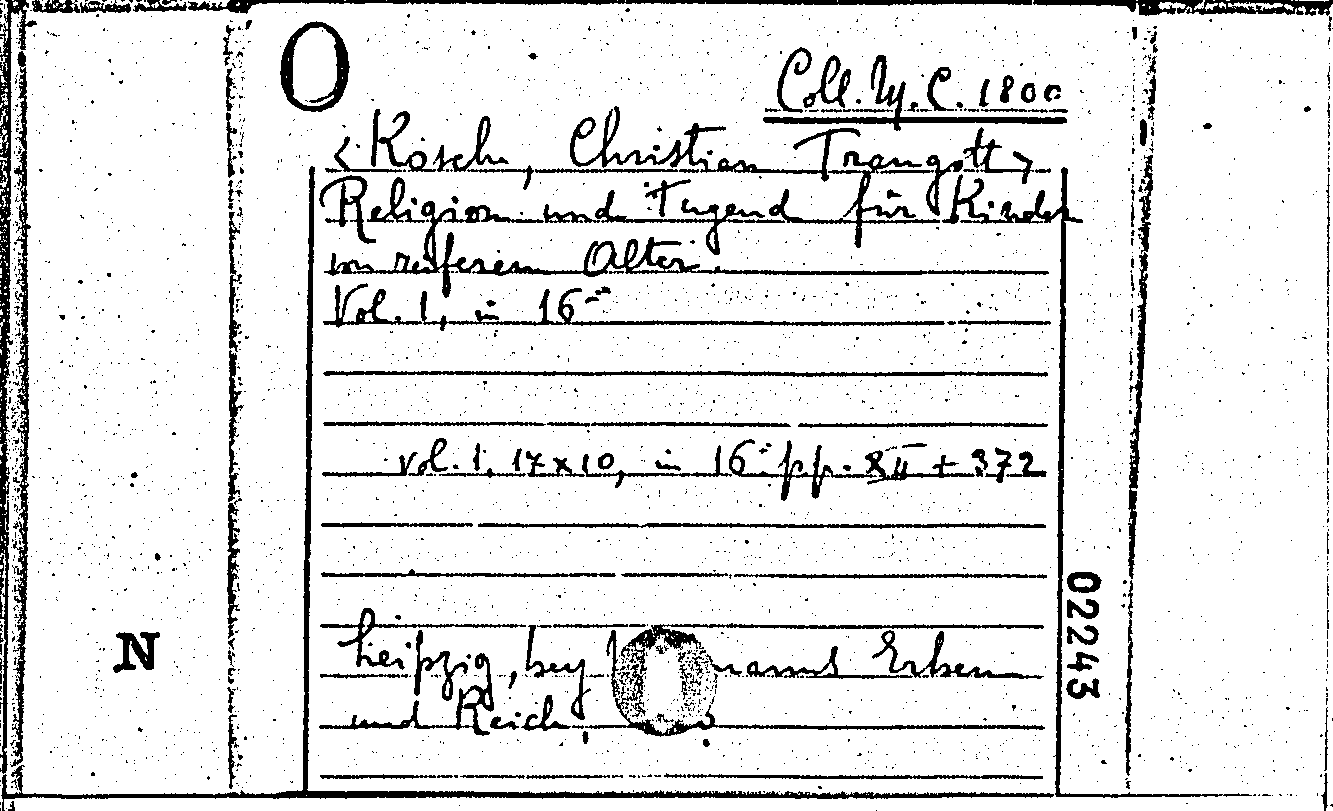 O
Coll. M. C. 1800
<Kösch, Christian Traugott>
Religion und Tugend für Kinder
von reiferem Alter.
Vol. 1, in 16°
vol. 1, 17x10, in 16° pp. XII + 372
Leipzig, bey Erben
und Reich,
02243
N